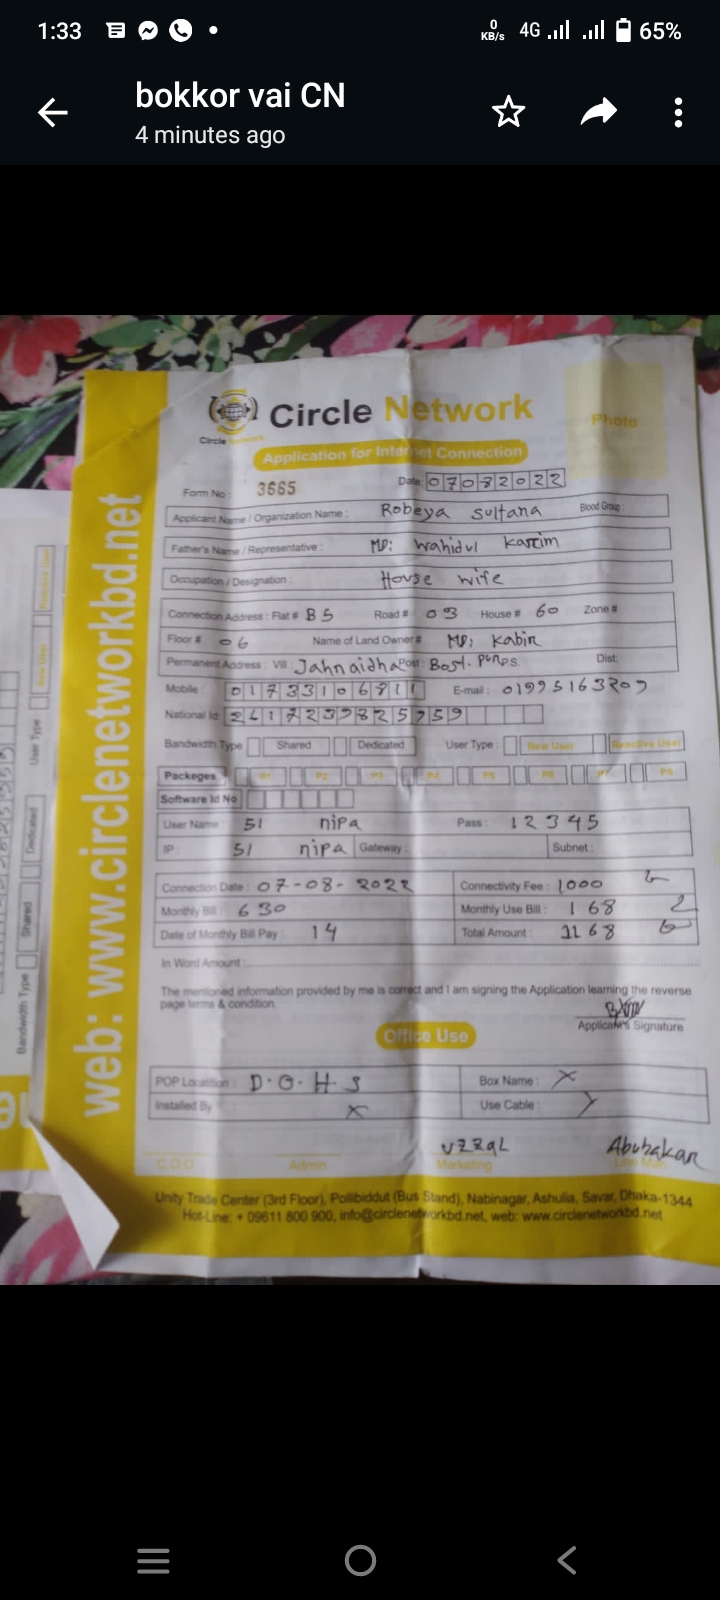 1:33 0 KB/s 4G 65%
bokkor vai CN
4 minutes ago
Circle Network
Circle Network
Photo
Application for Internet Connection
Form No : 3665 Date: 07082022
Applicant Name / Organization Name : Robeya sultana Blood Group :
Father's Name / Representative : MD: wahidul karim
Occupation / Designation : House wife
Connection Address : Flat # B5 Road # 03 House # 60 Zone #
Floor # 06 Name of Land Owner # MD: kabir
Permanent Address : Vill : Jahnaidha Post : Dist:
Mobile : 01733106811 E-mail : 01995163209
National Id:
Bandwidth Type Shared Dedicated User Type : New User Reactive User
Packeges P1 P2 P3 P4 P5 P6 P7 P8
Software Id No
User Name : 51 nipa Pass : 12345
IP : 51 nipa Gateway : Subnet :
Connection Date : 07-08-2022 Connectivity Fee : 1000
Monthly Bill : 630 Monthly Use Bill : 168
Date of Monthly Bill Pay : 14 Total Amount : 1168
In Word Amount :
The mentioned information provided by me is correct and I am signing the Application learning the reverse
page terms & condition.
Applicant's Signature
Office Use
POP Location : D.O.H.S Box Name : X
Installed By : X Use Cable :
Abubakar
C.O.O Admin Marketing Line Man
Unity Trade Center (3rd Floor), Pollibiddut (Bus Stand), Nabinagar, Ashulia, Savar, Dhaka-1344
Hot-Line: + 09611 800 900, info@circlenetworkbd.net, web: www.circlenetworkbd.net
web: www.circlenetworkbd.net
Bandwidth Type Shared Dedicated User Type : New User Reactive User